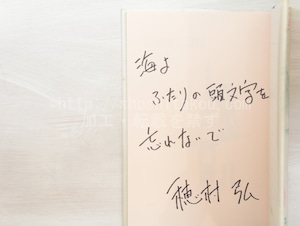 海よ
ふたりの頭文字を
忘れないで
穂村弘